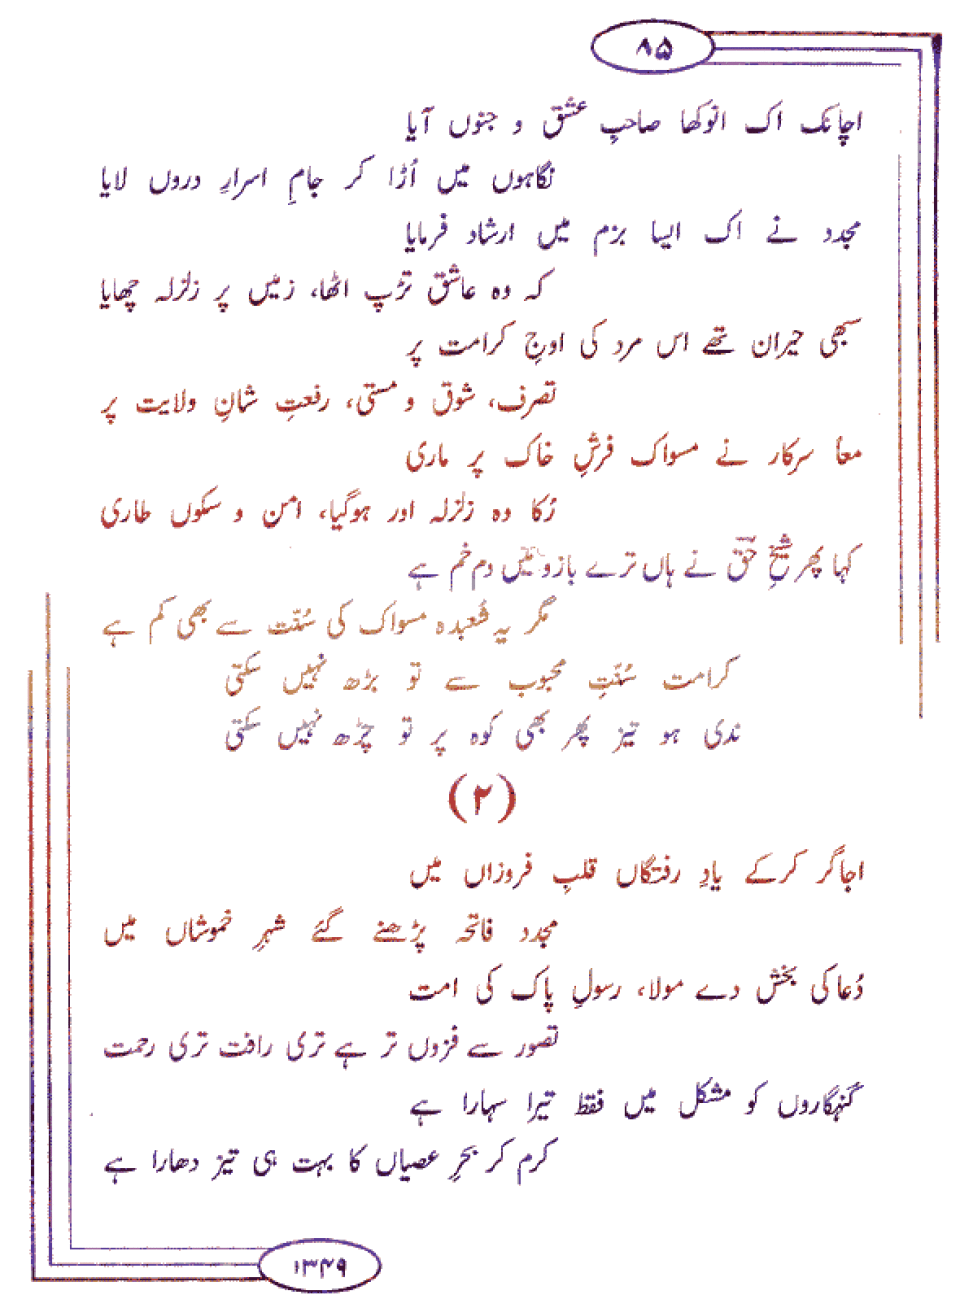 ۸۵
اچانک اک انوکھا صاحبِ عشق و جنوں آیا
نگاہوں میں اُڑا کر جامِ اسرارِ دروں لایا
مجدد نے اک ایسا بزم میں ارشاد فرمایا
کہ وہ عاشق تڑپ اٹھا، زمیں پر زلزلہ چھایا
سبھی حیران تھے اس مرد کی اوجِ کرامت پر
تصرف، شوق و مستی، رفعتِ شانِ ولایت پر
معاً سرکار نے مسواک فرشِ خاک پر ماری
رُکا وہ زلزلہ اور ہوگیا، امن و سکوں طاری
کہا پھر شیخِ حق نے ہاں ترے بازو میں دم خم ہے
مگر یہ شعبدہ مسواک کی سُنّت سے بھی کم ہے
کرامت سُنّتِ محبوب سے تو بڑھ نہیں سکتی
ندی ہو تیز پھر بھی کوہ پر تو چڑھ نہیں سکتی
(۲)
اجاگر کرکے یادِ رفتگاں قلبِ فروزاں میں
مجدد فاتحہ پڑھنے گئے شہرِ خموشاں میں
دُعا کی بخش دے مولا، رسولِ پاک کی امت
تصور سے فزوں تر ہے تری رافت تری رحمت
گنہگاروں کو مشکل میں فقط تیرا سہارا ہے
کرم کر بحرِ عصیاں کا بہت ہی تیز دھارا ہے
۱۳۴۹